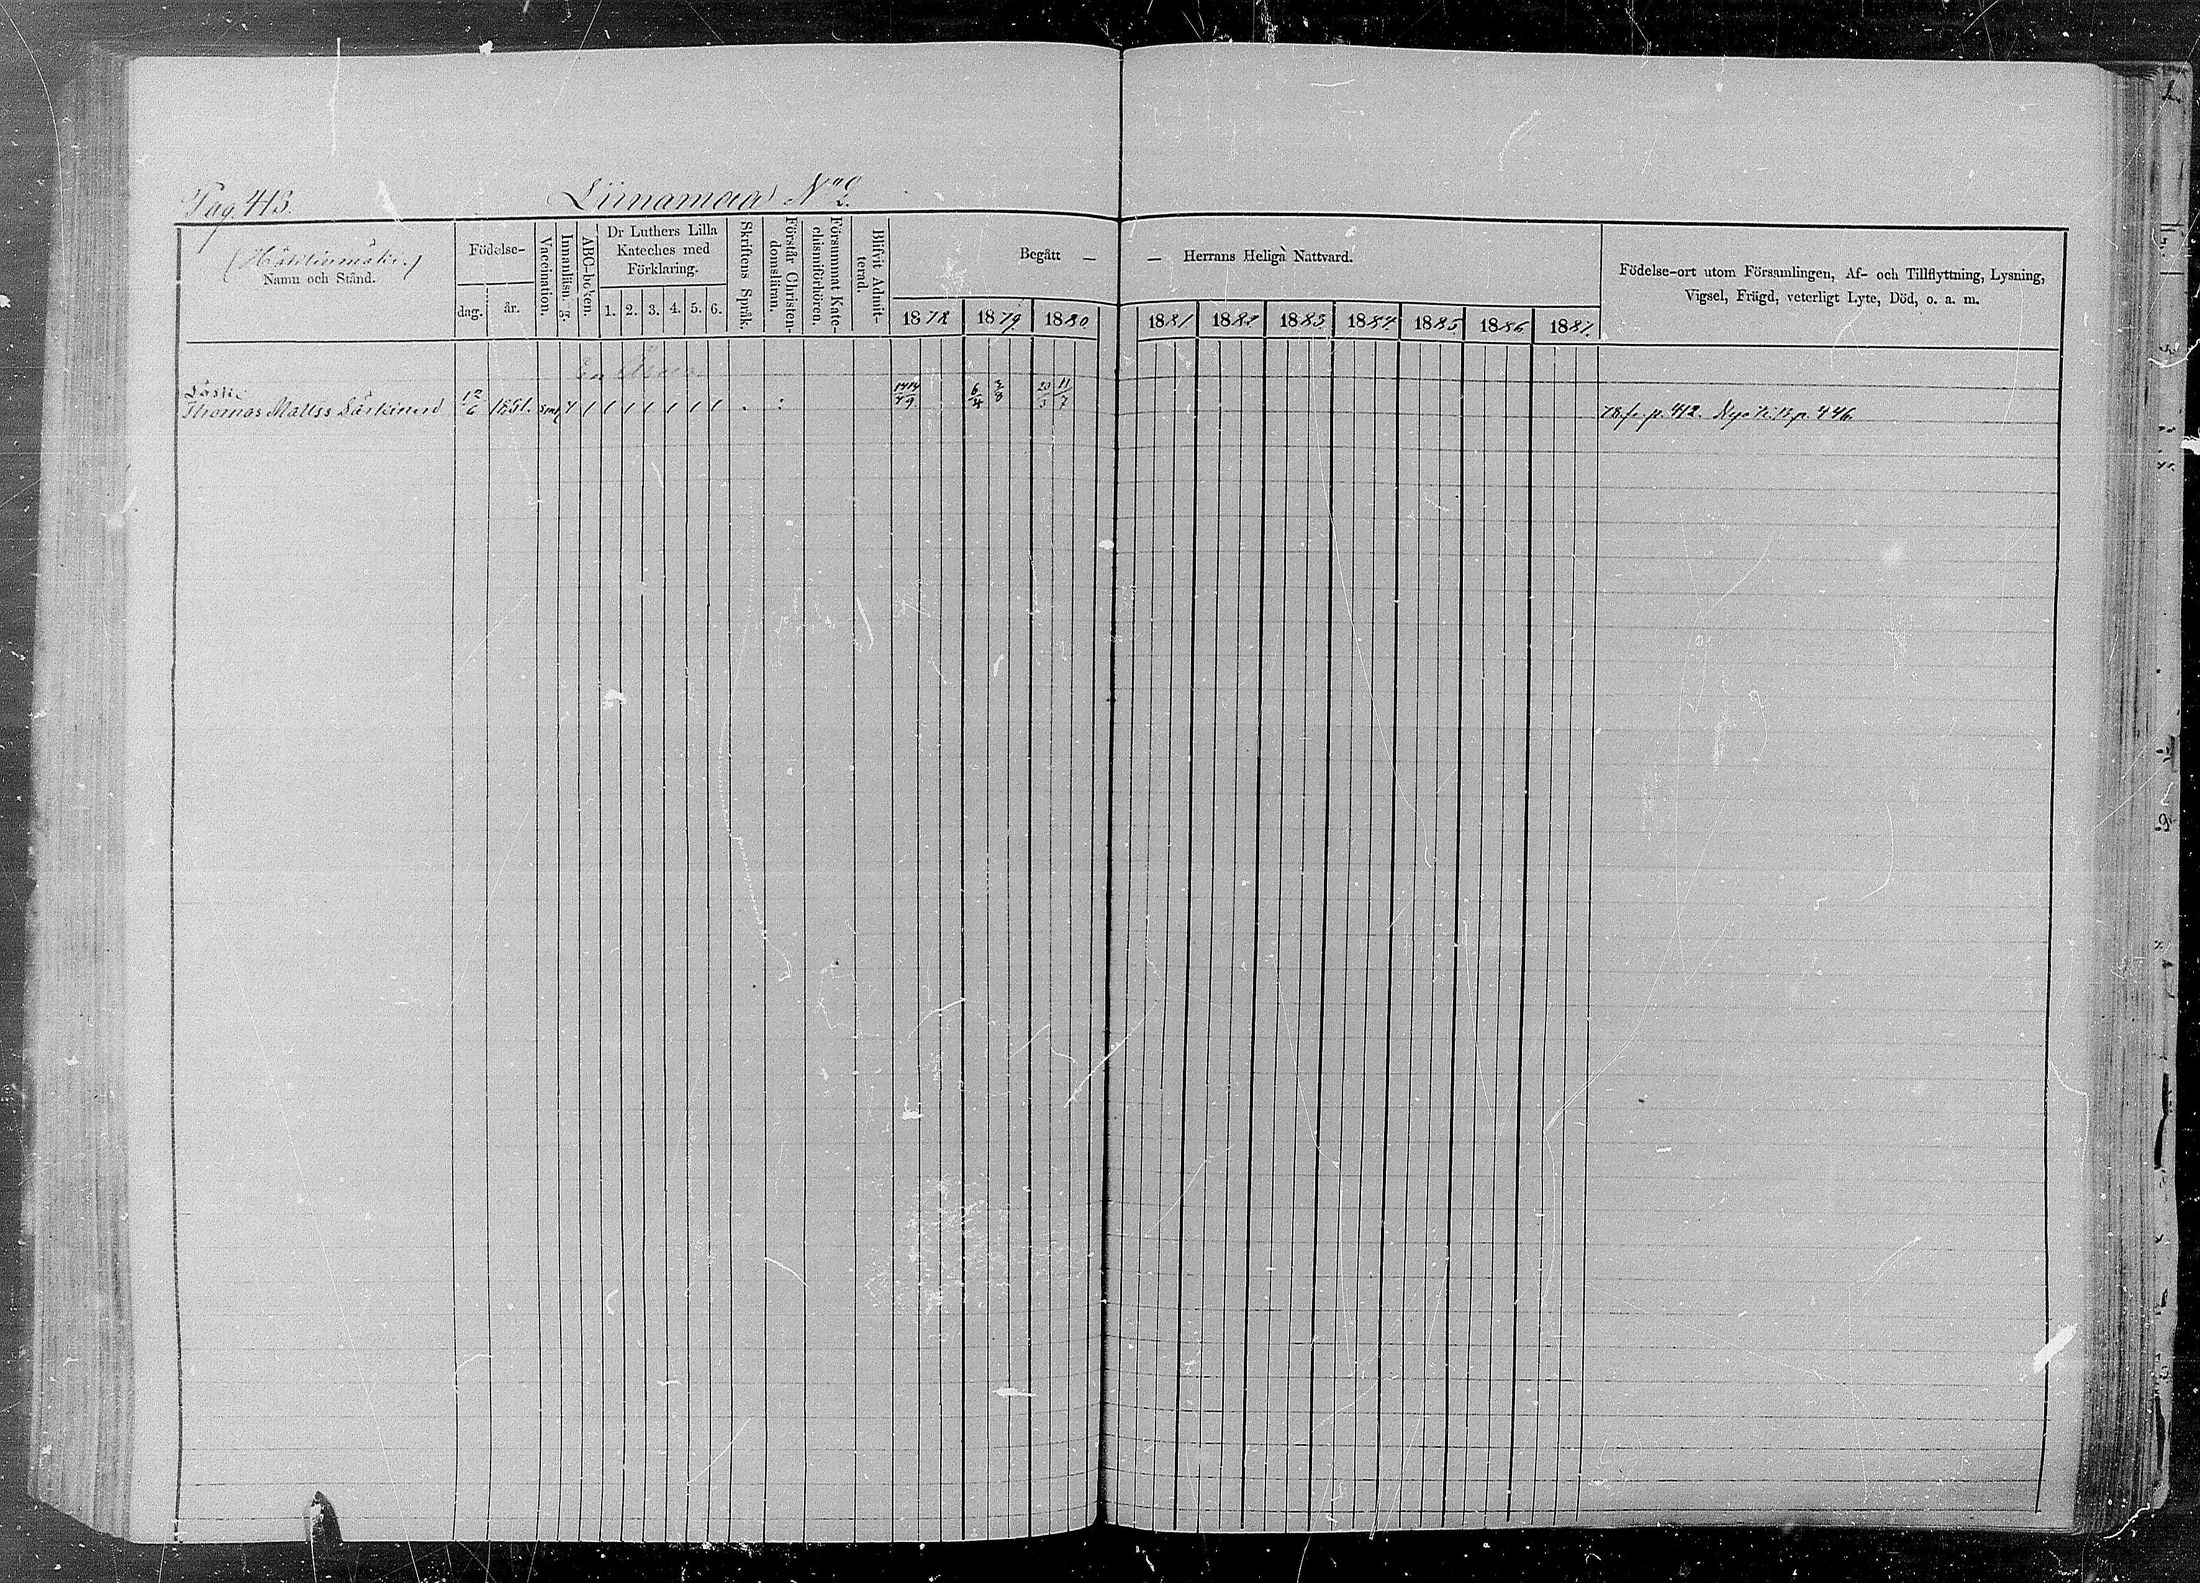 Pag. 413. Liinamaa No 2.
Namn och Stånd.
Födelse-
dag. år.
Vaccination.
Innanläsning.
ABC-boken.
Dr Luthers Lilla
Kateches med
Förklaring.
1. 2. 3. 4. 5. 6.
Skriftens Språk.
Förstår Christen-
domsläran.
Försummat Kate-
chismiförhören.
Blifvit Admit-
terad.
Begått — — Herrans Heliga Nattvard.
1878 1879 1880 1881 1882 1883 1884 1885 1886 1887.
Födelse-ort utom Församlingen, Af- och Tillflyttning, Lysning,
Vigsel, Frägd, veterligt Lyte, Död, o. a. m.
Thomas Matts Särkinen 12/6 1851. 6/4 3/8 20/5 11/7 78 fr. p. 412. Nya K.B. p. 446.